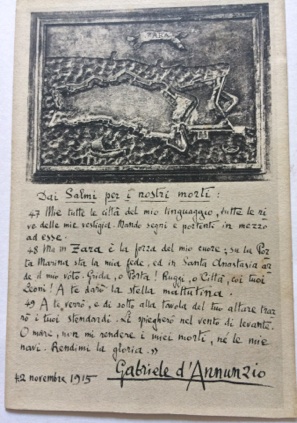 ZARA
Dai Salmi per i nostri morti:
47 Mie tutte le città del mio linguaggio, tutte le ri-
ve delle mie vestigia. Mando segni e portenti in mezzo
ad esse.
48 Ma in Zara è la forza del mio cuore; su la Por-
ta Marina sta la mia fede, ed in Santa Anastasia ar-
de il mio vóto. Grida, o Porta! Ruggi, o Città, coi tuoi
Leoni! A te darò la stella mattutina.
49 A te verrò, e di sotto alla tavola del tuo altare trar-
rò i tuoi stendardi. Li spiegherò nel vento di levante.
O mare, non mi rendere i miei morti, né le mie
navi. Rendimi la gloria. »
2 novembre 1915 Gabriele d'Annunzio